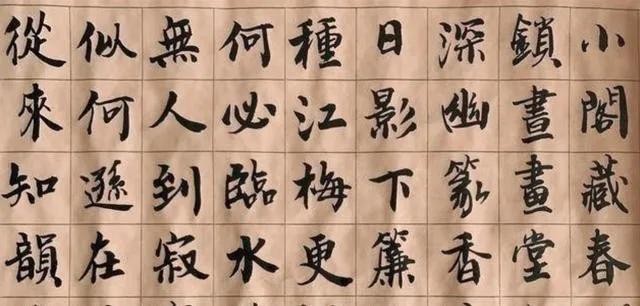 小閣藏春
鎖晝畫堂
深幽篆香
日影下簾
種江梅更
何必臨水
無人到寂
似何遜在
從來知韻